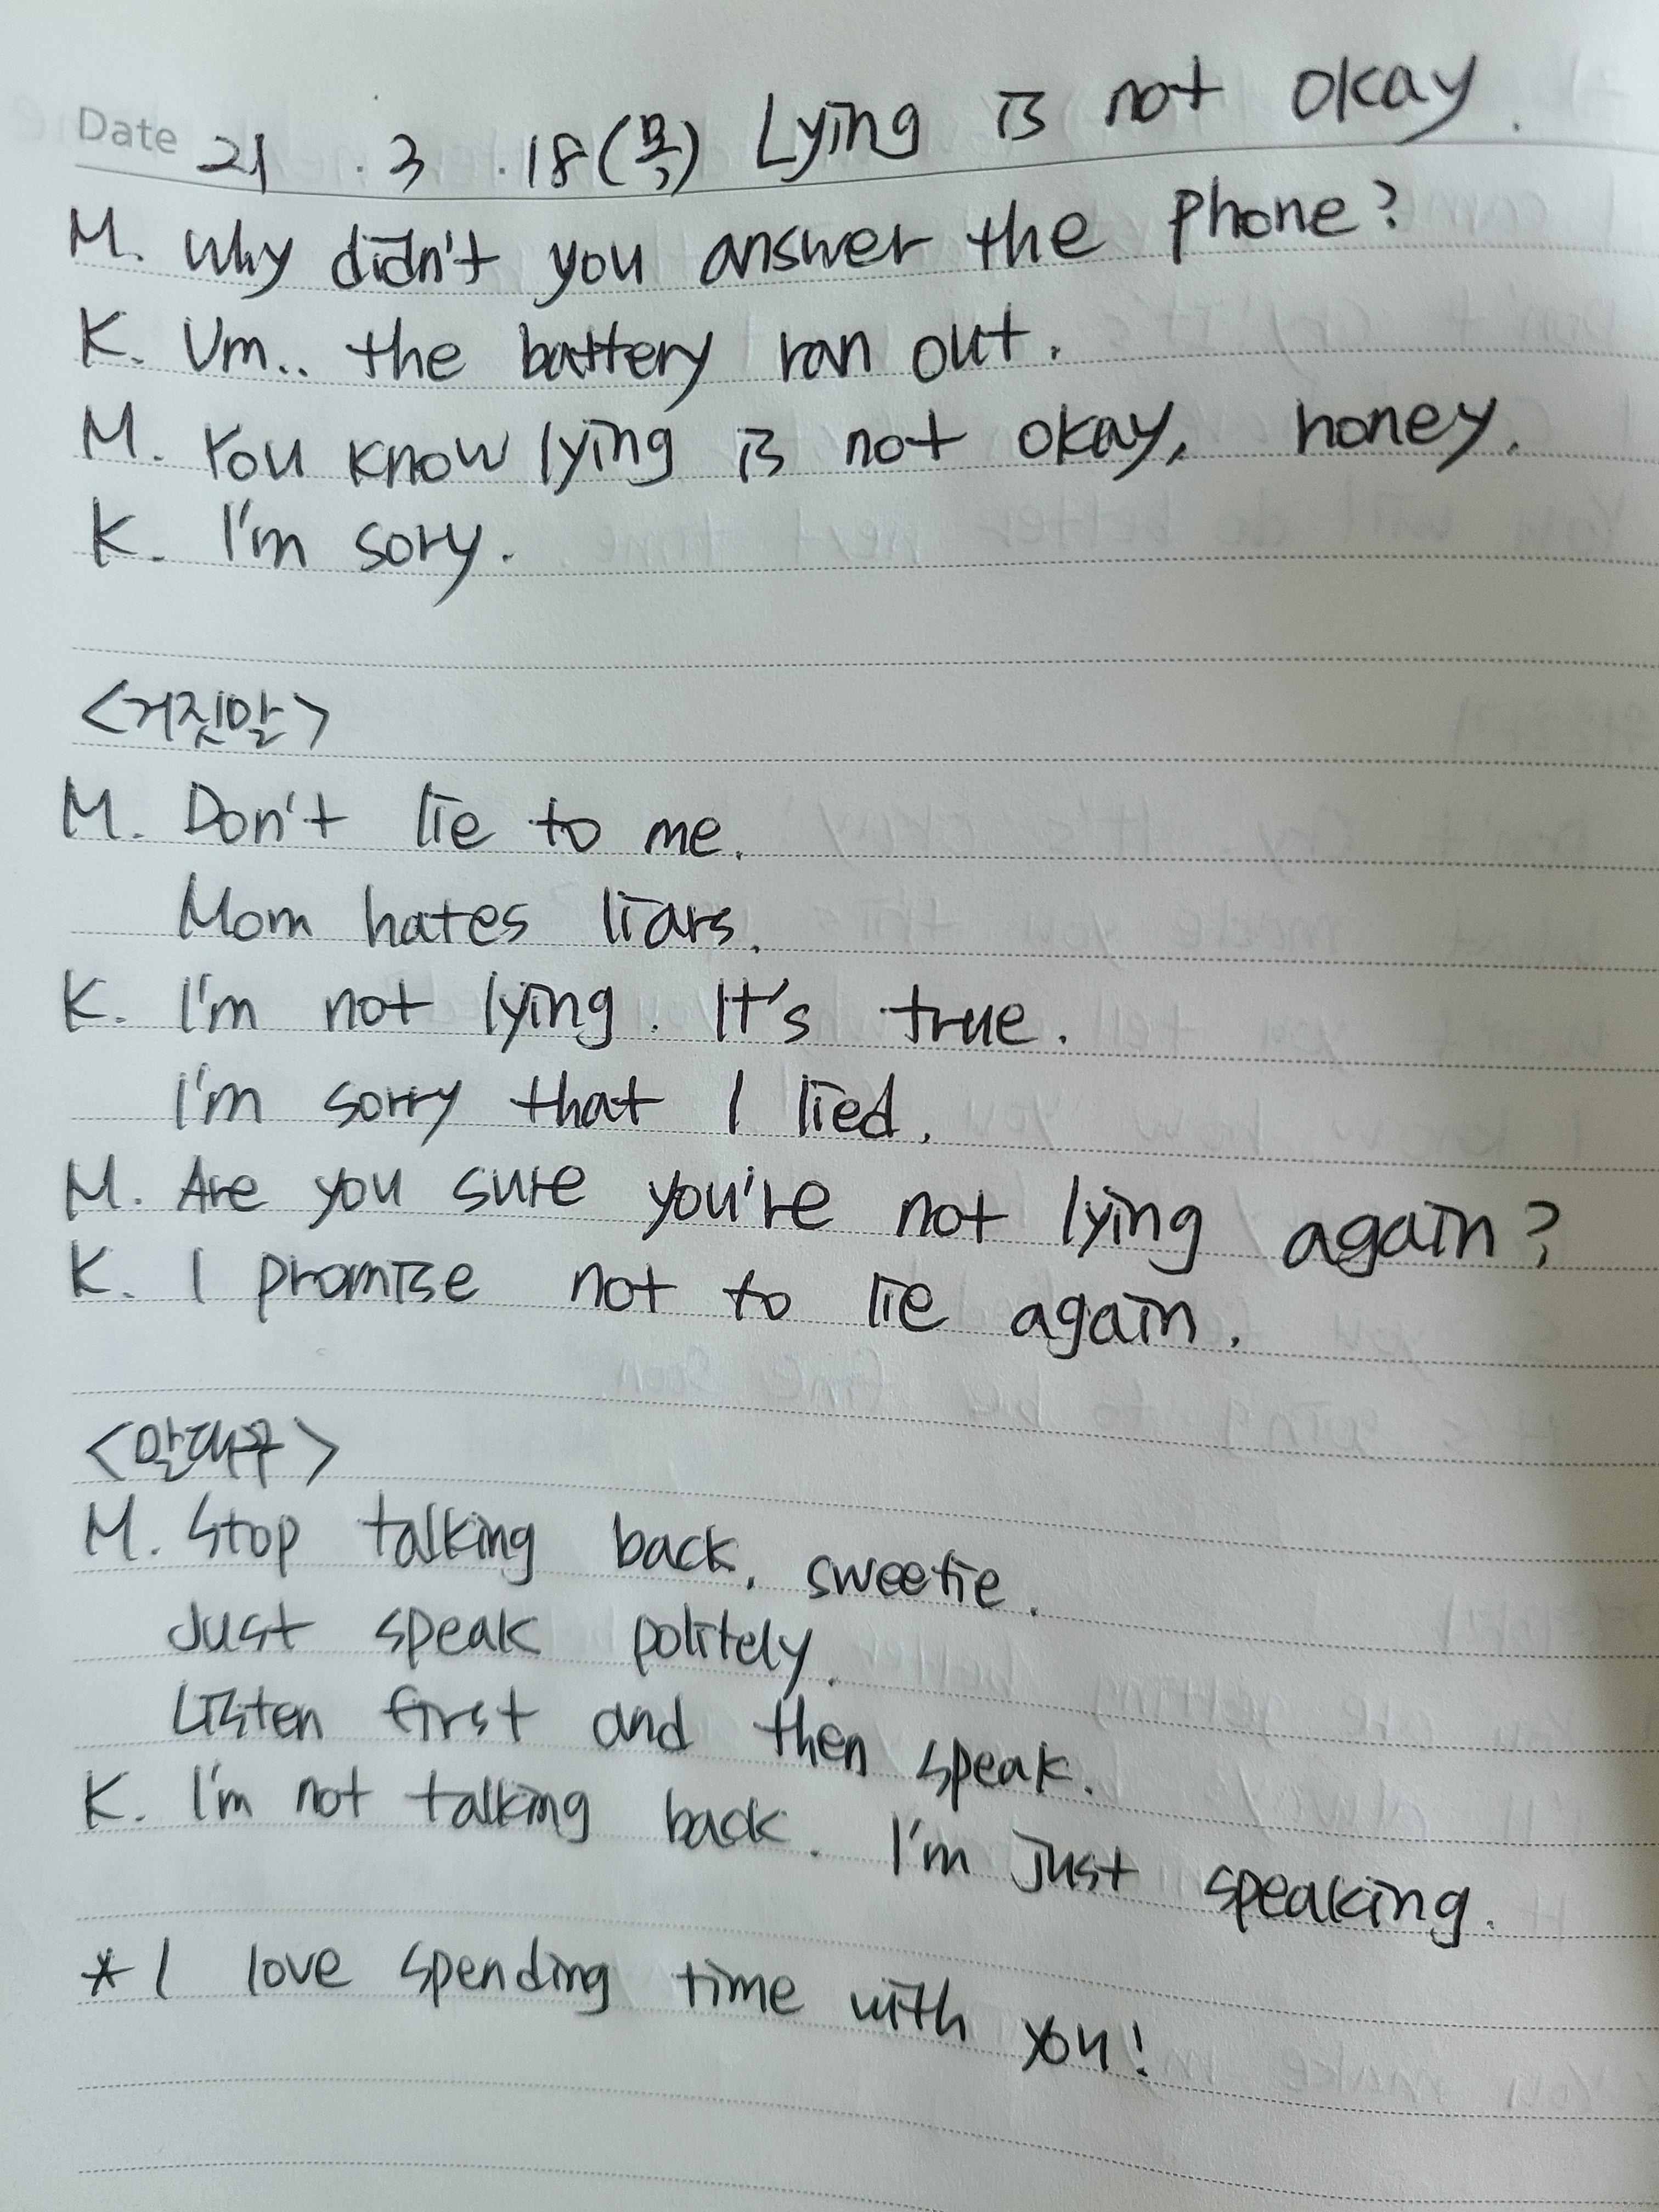 Date 21 . 3 . 18 (목) Lying is not okay.
M. Why didn't you answer the phone?
K. Um.. the battery ran out.
M. You know lying is not okay, honey.
K. I'm sory.
<거짓말>
M. Don't lie to me.
Mom hates liars.
K. I'm not lying. It's true.
I'm sorry that I lied.
M. Are you sure you're not lying again?
K. I promise not to lie again.
<말대꾸>
M. Stop talking back, sweetie.
Just speak politely.
Listen first and then speak.
K. I'm not talking back. I'm just speaking.
* I love spending time with you!